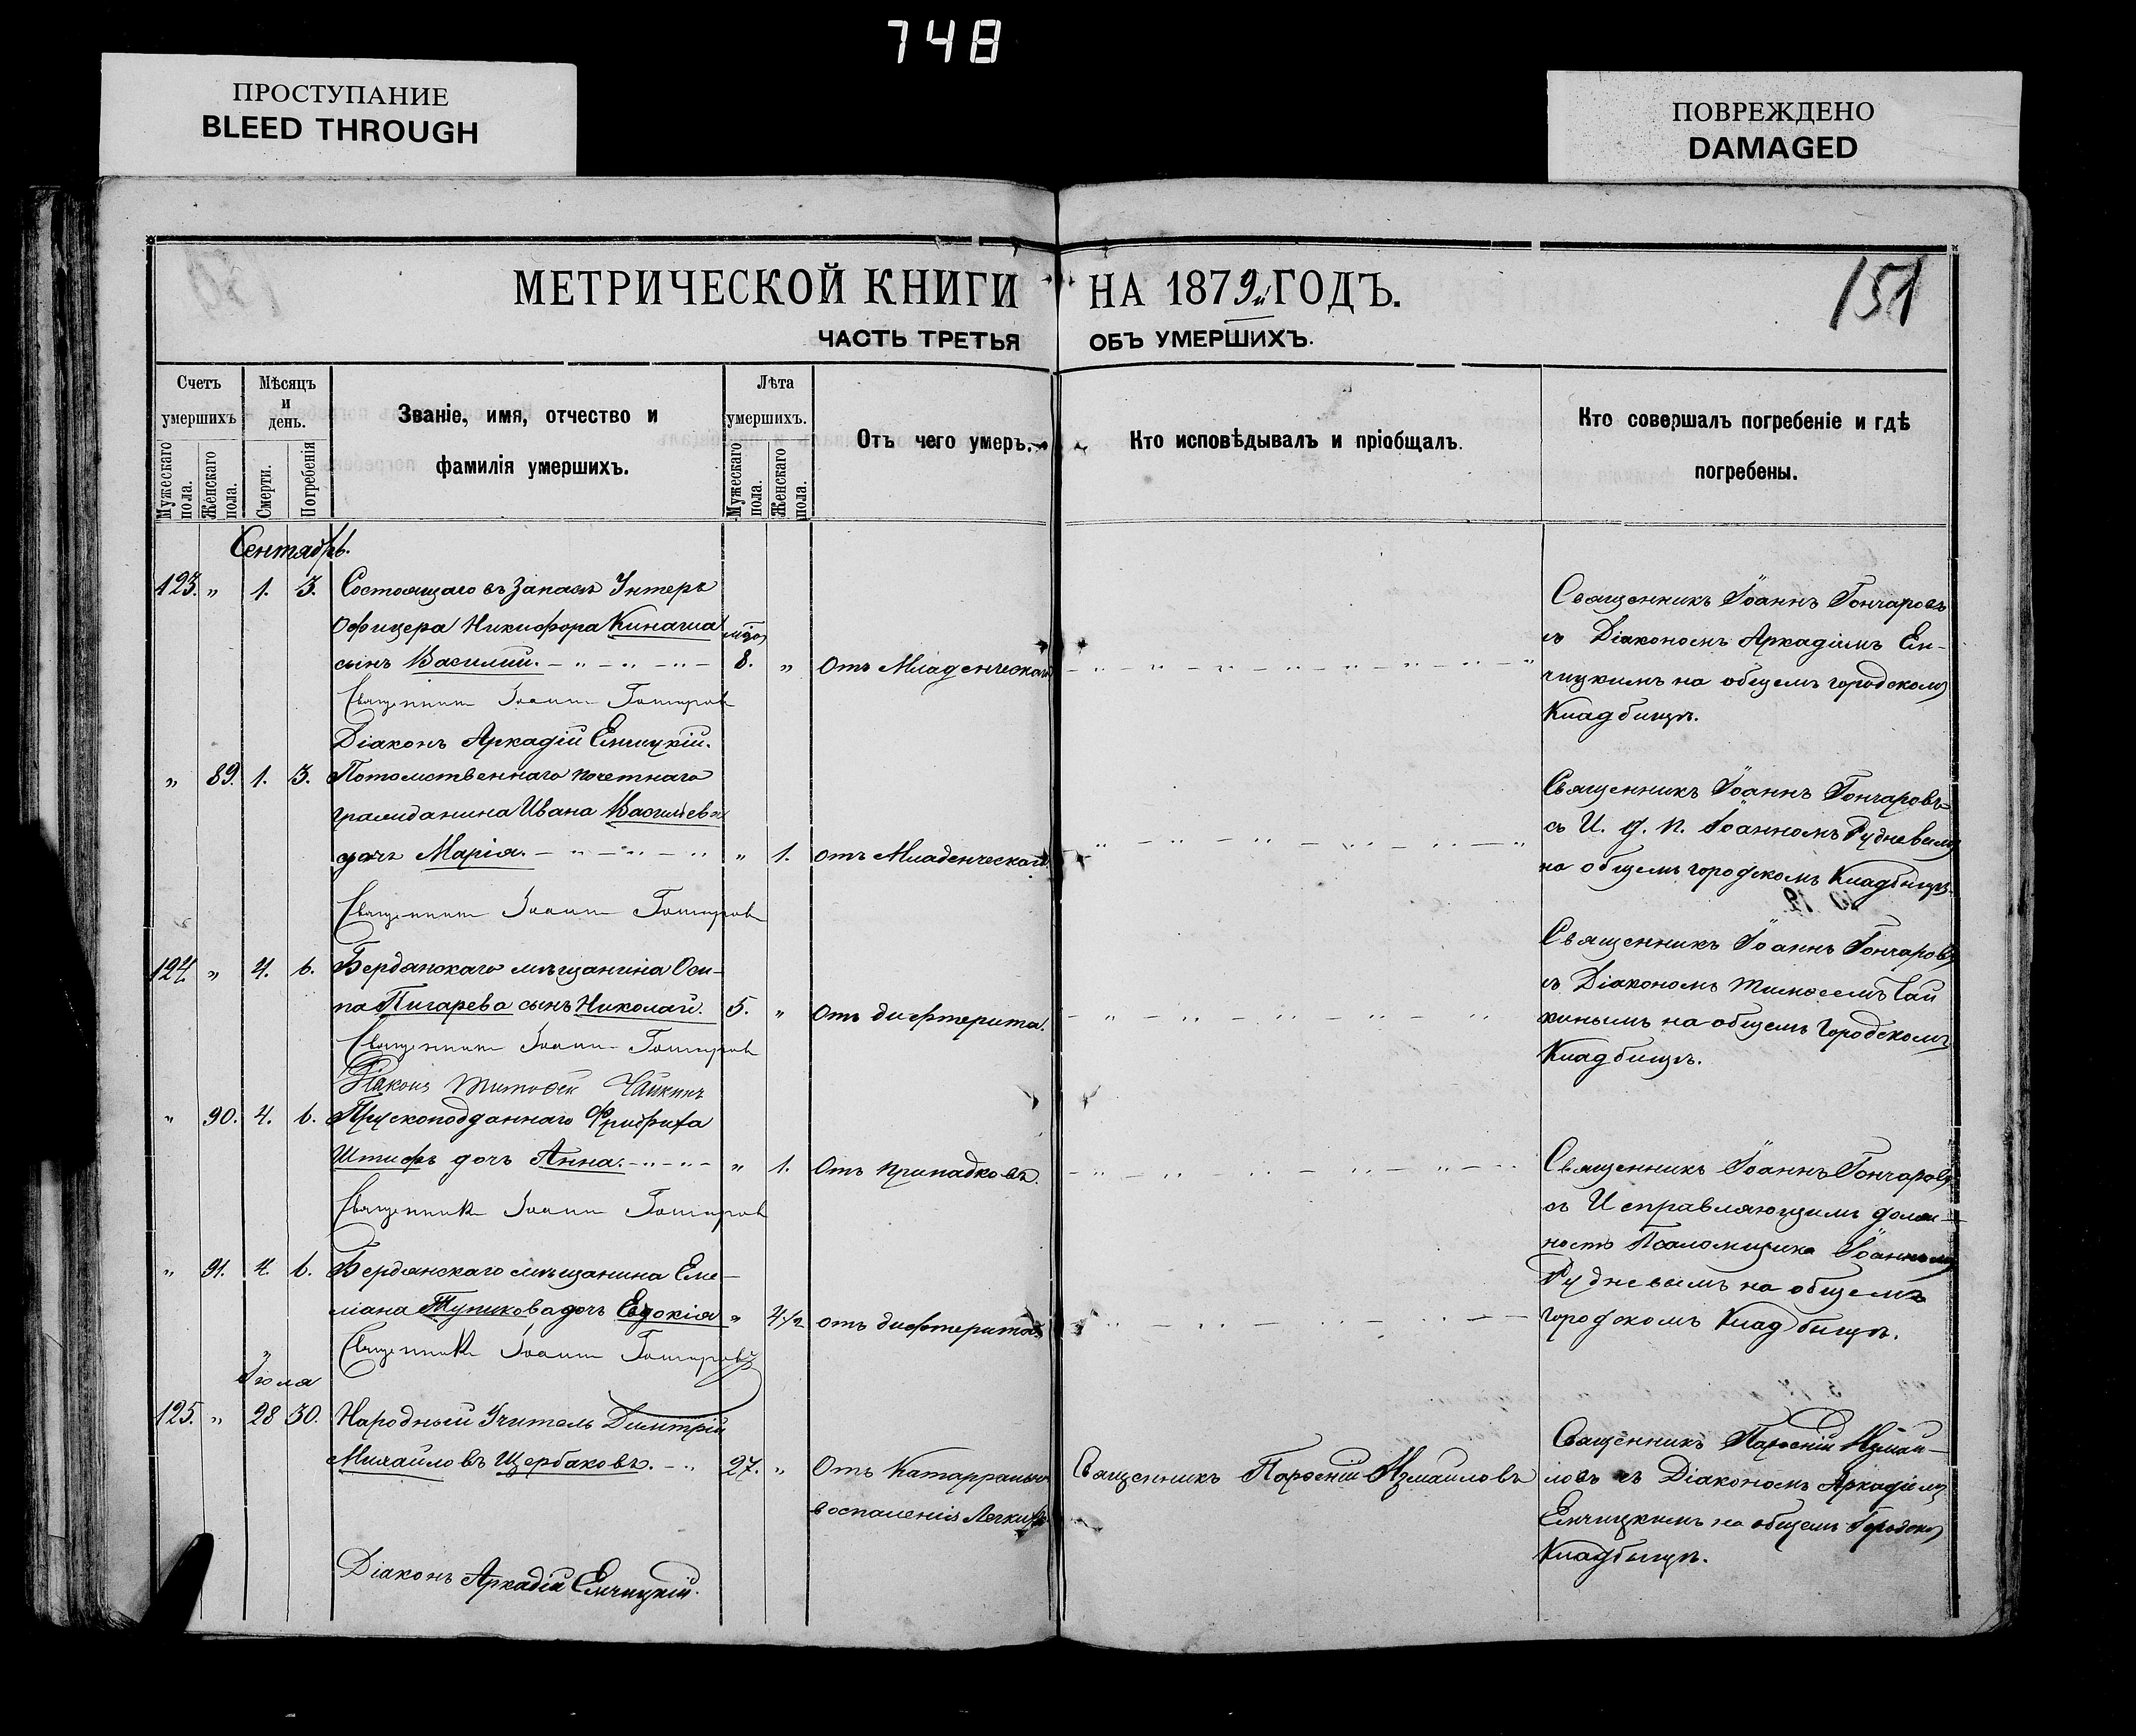 748
ПРОСТУПАНИЕ
BLEED THROUGH
ПОВРЕЖДЕНО
DAMAGED
МЕТРИЧЕСКОЙ КНИГИ НА 1879й ГОДЪ.
151
ЧАСТЬ ТРЕТЬЯ ОБЪ УМЕРШИХЪ.
Счетъ умершихъ
Мужескаго пола.
Женскаго пола.
Мѣсяцъ и день.
Смерти.
Погребенія
Званіе, имя, отчество и
фамилія умершихъ.
Лѣта умершихъ.
Мужескаго пола.
Женскаго пола.
Отъ чего умеръ.
Кто исповѣдывалъ и пріобщалъ.
Кто совершалъ погребеніе и гдѣ
погребены.
Сентябрь.
123. " 1. 3. Состоящаго въ Запасѣ Унтеръ
Офицера Никифора Кинаша
сынъ Василий. 8. " Отъ Младенческаго
Священникъ Іоаннъ Гончаровъ
Діаконъ Аркадій Емчицкій.
Священникъ Іоаннъ Гончаровъ
съ Діакономъ Аркадіемъ Ем-
чицкимъ на общемъ городскомъ
Кладбищѣ.
" 89. 1. 3. Потомственнаго почетнаго
гражданина Ивана Васильева
дочь Марія. " 1. отъ Младенческаго
Священникъ Іоаннъ Гончаровъ
Священникъ Іоаннъ Гончаровъ
съ И. д. п. Іоанномъ Рудневымъ
на общемъ городскомъ Кладбищѣ.
124. " 4. 6. Бердянскаго мѣщанина Оси-
па Пигарева сынъ Николай. 5. " Отъ дифтерита.
Священникъ Іоаннъ Гончаровъ
Діаконъ Тимофей Чайкинъ
Священникъ Іоаннъ Гончаровъ
съ Діакономъ Тимофеемъ Чай
кинымъ на общемъ Городскомъ
Кладбищѣ.
" 90. 4. 6. Прускоподданнаго Фридриха
Штифъ дочь Анна. " 1. Отъ припадковъ.
Священникъ Іоаннъ Гончаровъ
Священникъ Іоаннъ Гончаровъ
съ Исправляющимъ долж-
ность Псаломщика Іоанномъ
Рудневымъ на общемъ
городскомъ Кладбищѣ.
" 91. 4. 6. Бердянскаго мѣщанина Еме-
льяна Тупикова дочь Евдокія " 4½ отъ дифтерита
Священникъ Іоаннъ Гончаровъ
Іюля
125. " 28 30. Народный Учитель Димитрій
Михайловъ Щербаковъ. 27. " Отъ Катарральн
воспаленія Легкихъ
Діаконъ Аркадій Емчицкій.
Священникъ Парѳеній Измаиловъ
Священникъ Парѳеній Измаи-
ловъ съ Діакономъ Аркадіемъ
Емчицкимъ на общемъ Городском
Кладбищѣ.